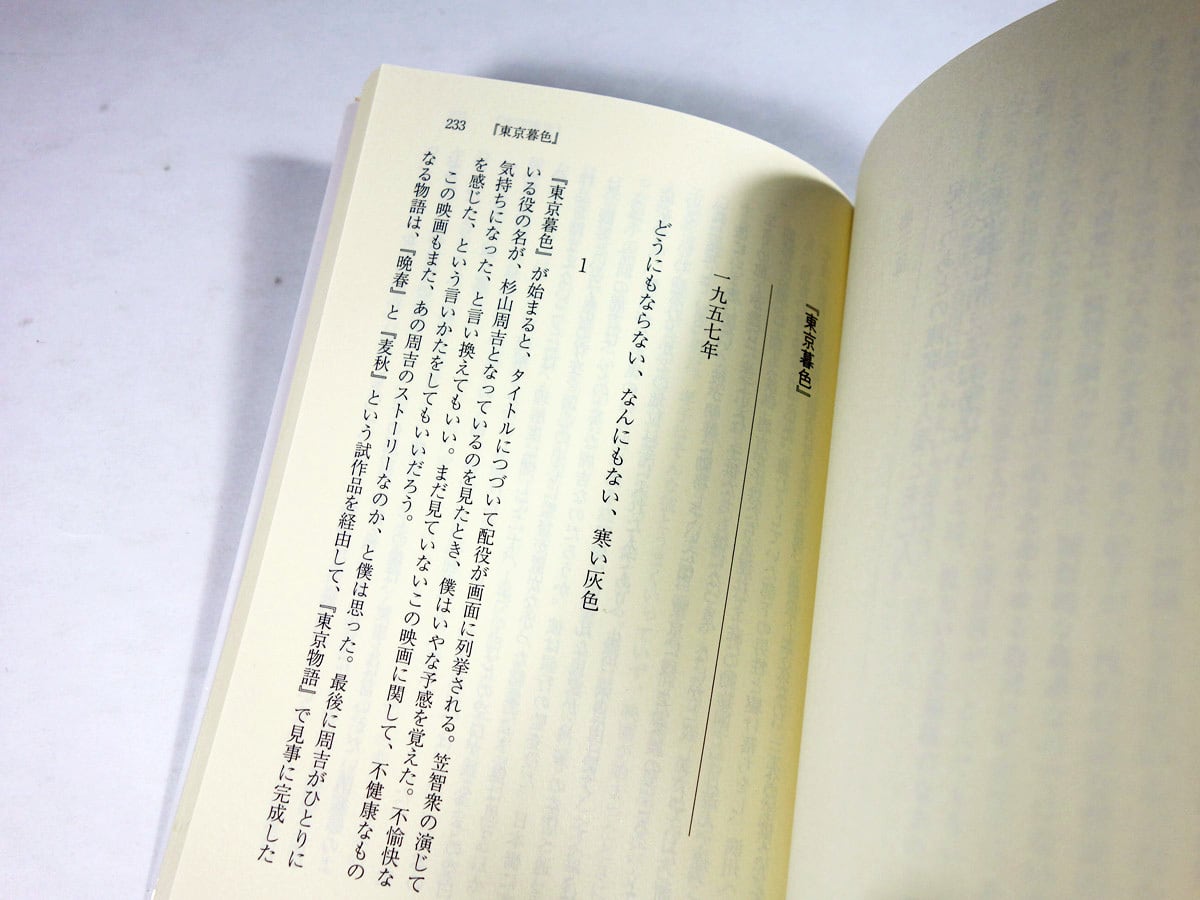 233
『東京暮色』
『東京暮色』
一九五七年
どうにもならない、なんにもない、寒い灰色
1
『東京暮色』が始まると、タイトルにつづいて配役が画面に列挙される。笠智衆の演じて
いる役の名が、杉山周吉となっているのを見たとき、僕はいやな予感を覚えた。不愉快な
気持ちになった、と言い換えてもいい。まだ見ていないこの映画に関して、不健康なもの
を感じた、という言いかたをしてもいいだろう。
この映画もまた、あの周吉のストーリーなのか、と僕は思った。最後に周吉がひとりに
なる物語は、『晩春』と『麦秋』という試作品を経由して、『東京物語』で見事に完成した